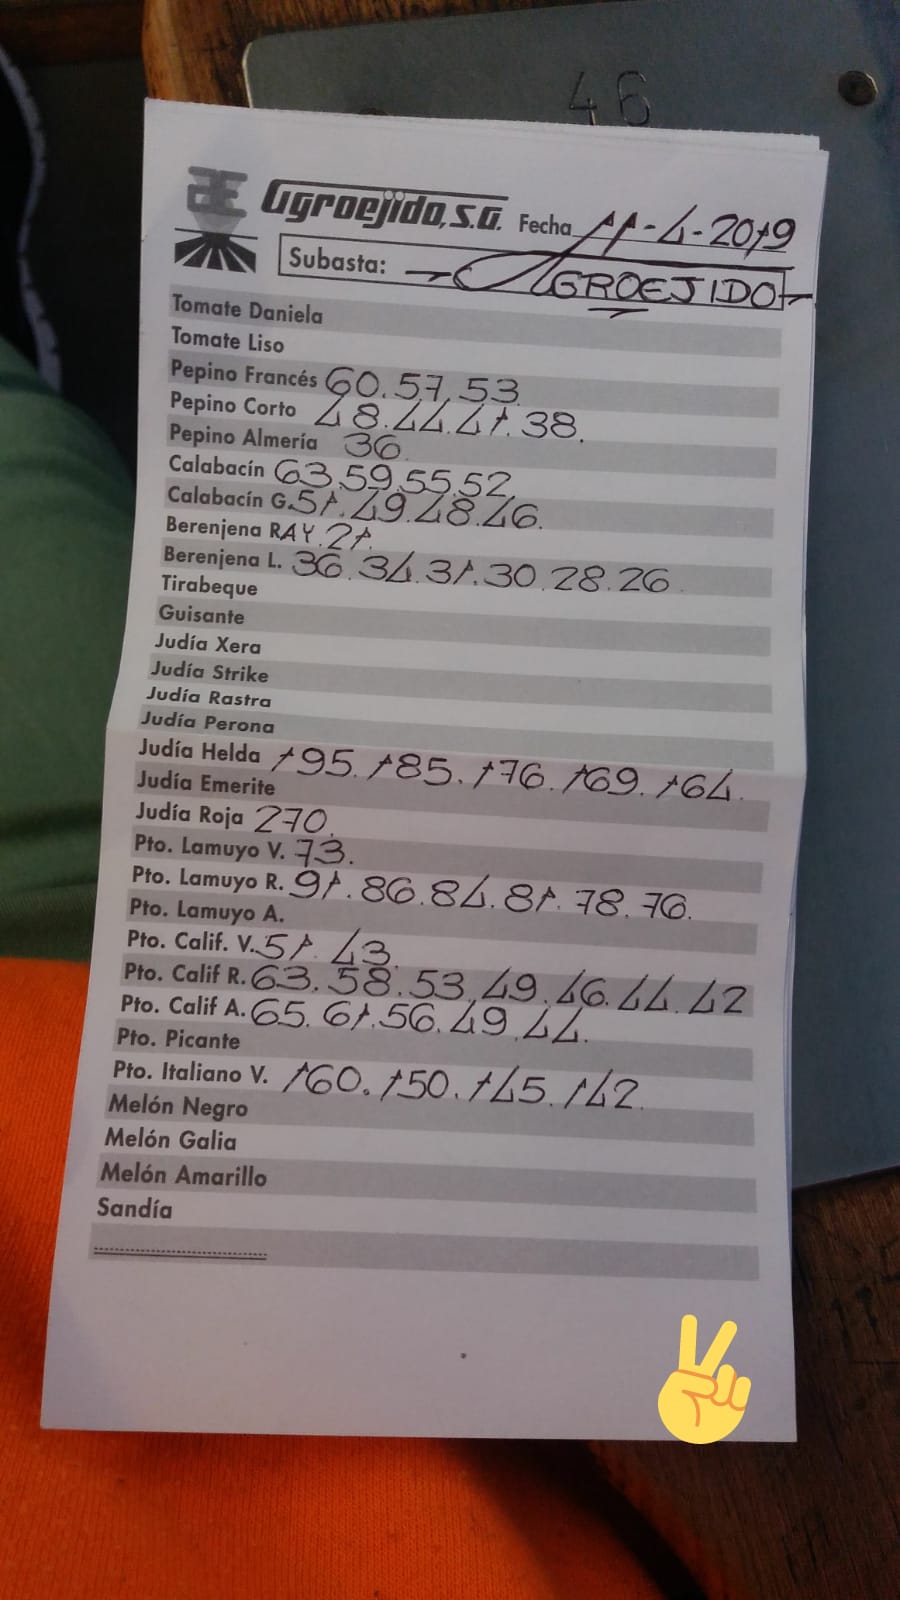 46
AE Agroejido, S.A. Fecha 11-4-2019
Subasta: AGROEJIDO
Tomate Daniela
Tomate Liso
Pepino Francés 60.57.53.
Pepino Corto 48.44.41.38.
Pepino Almería 36.
Calabacín 63.59.55.52.
Calabacín G. 51.49.48.46.
Berenjena RAY. 21.
Berenjena L. 36.34.31.30.28.26.
Tirabeque
Guisante
Judía Xera
Judía Strike
Judía Rastra
Judía Perona
Judía Helda 195.185.176.169.164.
Judía Emerite
Judía Roja 270.
Pto. Lamuyo V. 73.
Pto. Lamuyo R. 91.86.84.81.78.76.
Pto. Lamuyo A.
Pto. Calif. V. 51.43.
Pto. Calif R. 63.58.53.49.46.44.42
Pto. Calif A. 65.61.56.49.44.
Pto. Picante
Pto. Italiano V. 160.150.145.142.
Melón Negro
Melón Galia
Melón Amarillo
Sandía